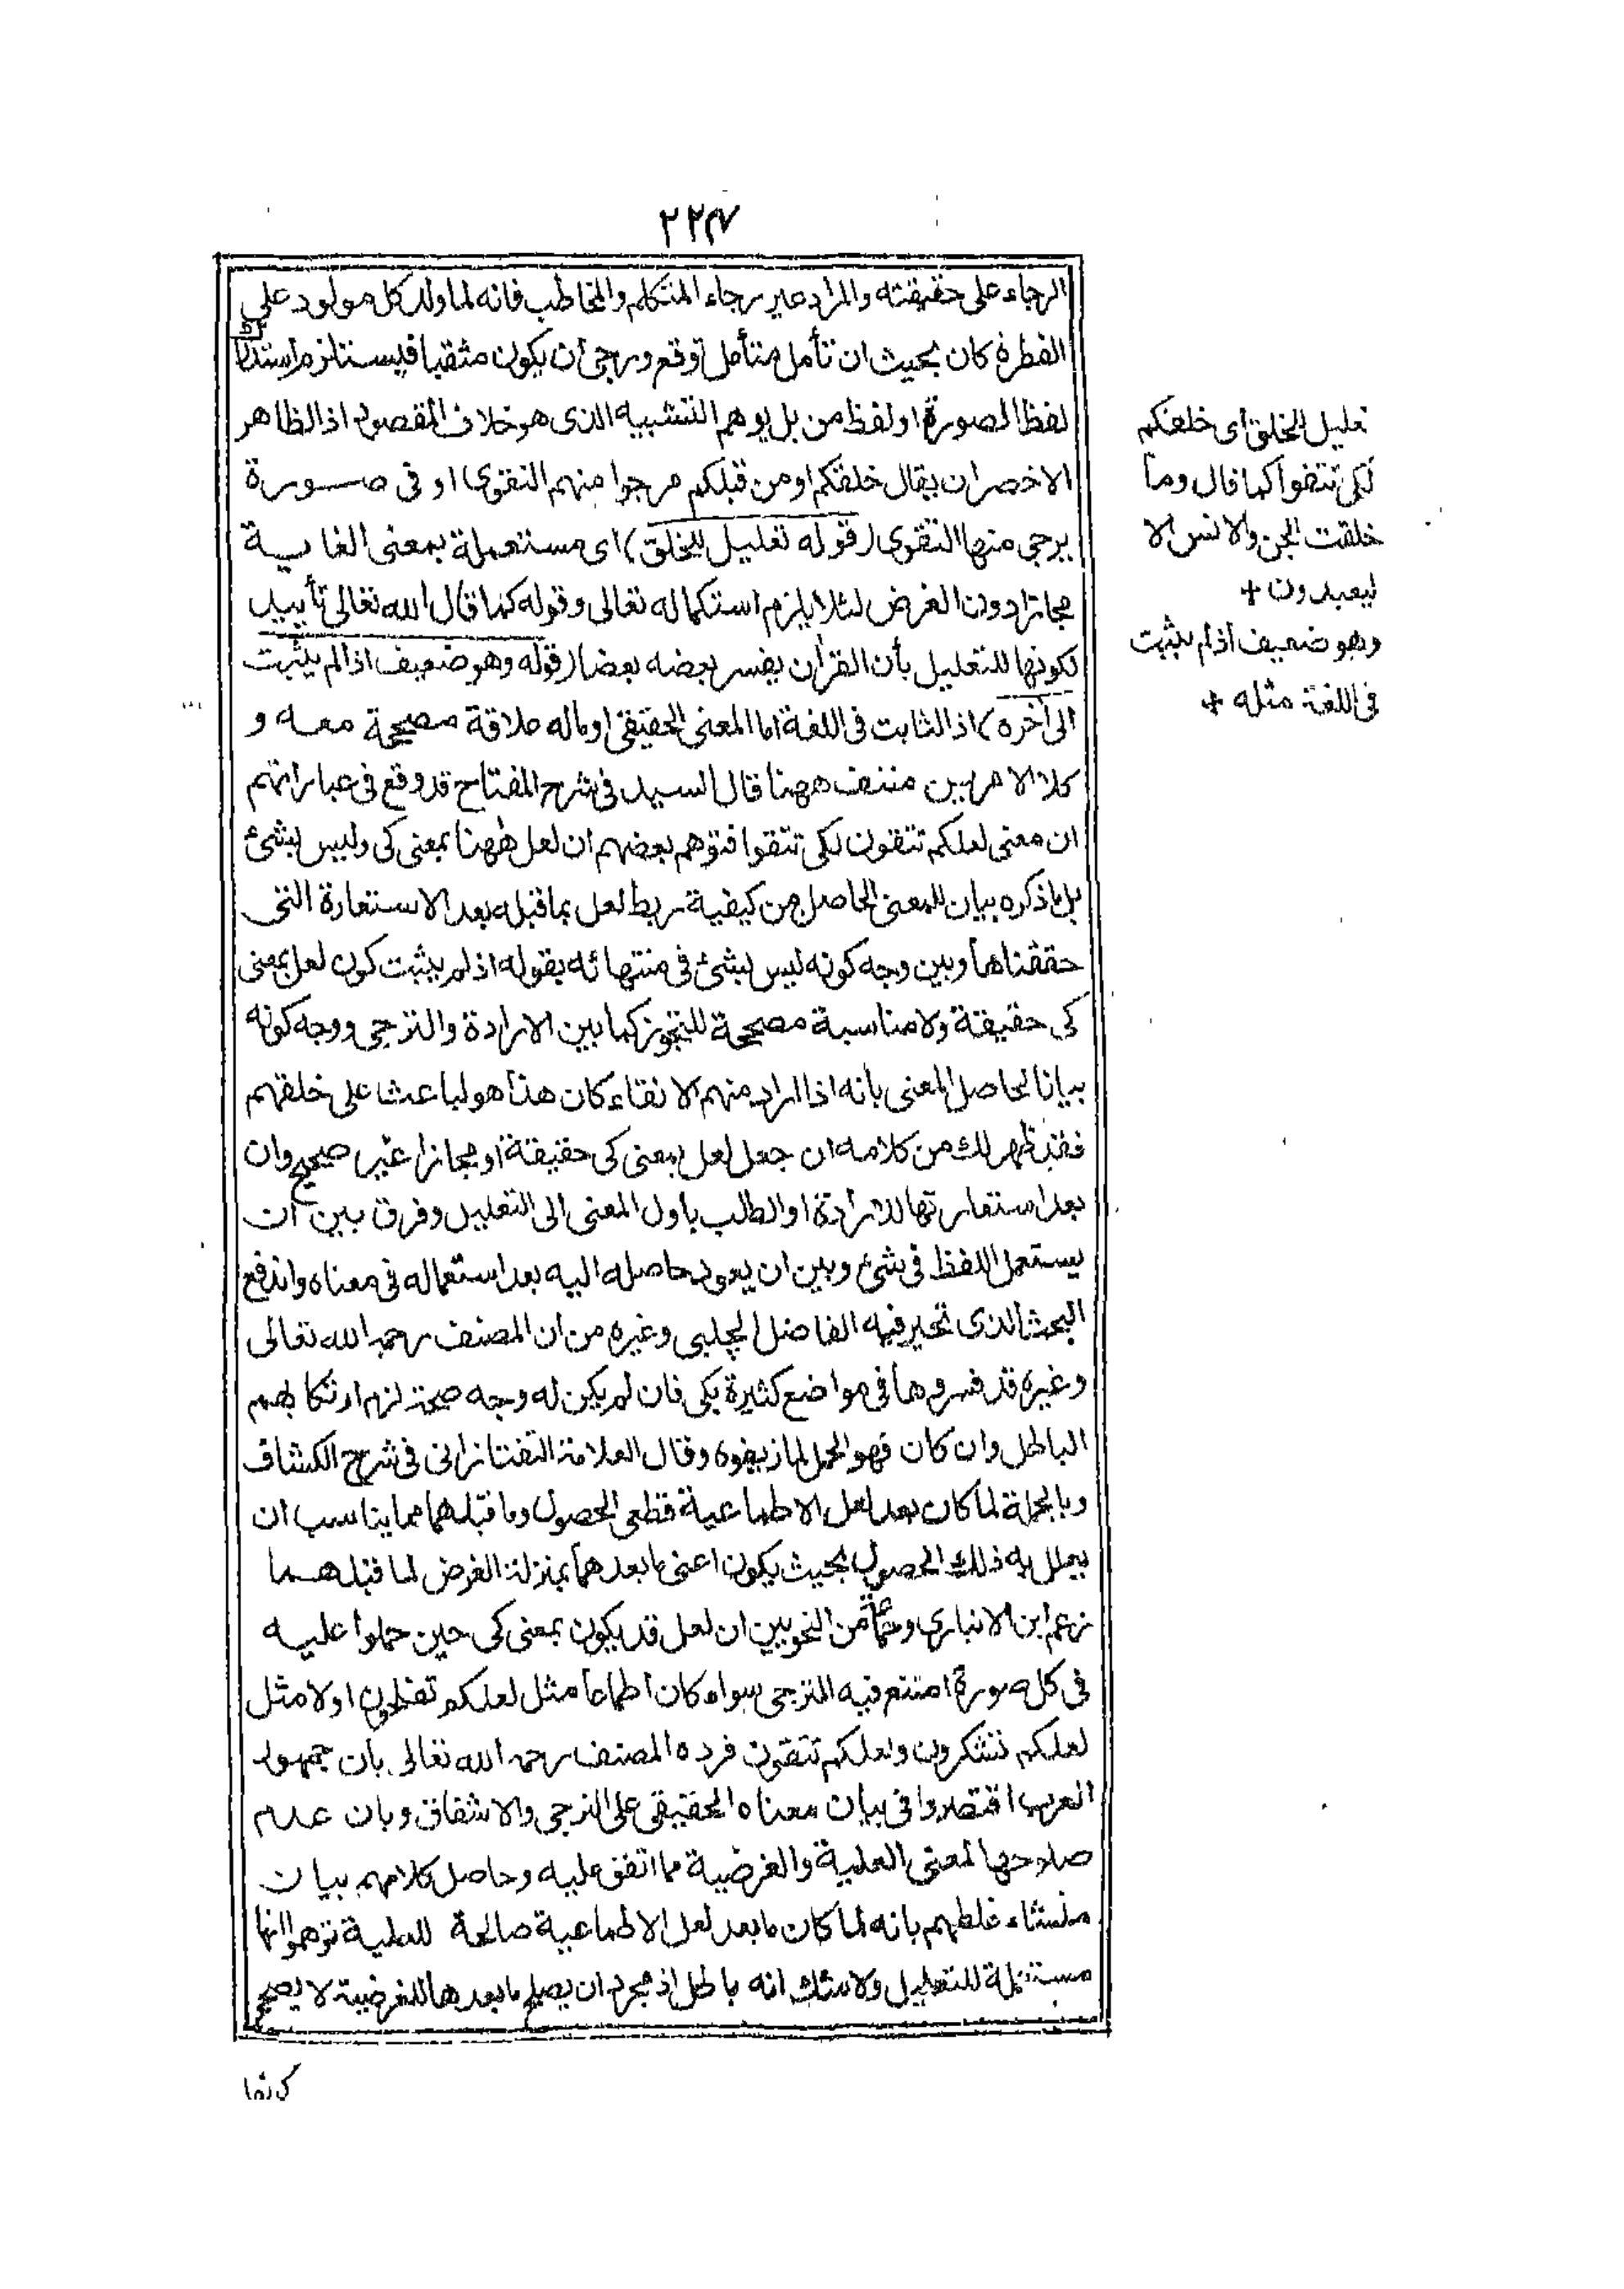 ٢٢٧
الرجاء على حقيقته والمراد غير رجاء المتكلم والمخاطب فانه لما ولد كل مولود على
الفطرة كان بحيث ان تأمل متأمل توقع ورجى أن يكون متقيا فيستلزم استدراك
لفظ الصورة او لفظ من بل يوهم التشبيه الذى هو خلاف المقصود اذ الظاهر
الاخصر ان يقال خلقكم او من قبلكم مرجوا منهم التقوى او فى صورة
يرجى منها التقوى (قوله تعليل للخلق) اى مستعملة بمعنى الغاية
مجازا دون الغرض لئلا يلزم استكماله تعالى وقوله كما قال الله تعالى تأييد
لكونها للتعليل بأن القرآن يفسر بعضه بعضا (قوله وهو ضعيف اذ لم يثبت
الى آخره) اذ الثابت فى اللغة اما المعنى الحقيقى او ماله علاقة مصححة معه و
كلا الامرين منتف ههنا قال السيد فى شرح المفتاح قد وقع فى عباراتهم
ان معنى لعلكم تتقون لكى تتقوا فتوهم بعضهم ان لعل ههنا بمعنى كى وليس بشئ
بل ما ذكره بيان للمعنى الحاصل من كيفية ربط لعل بما قبله بعد الاستعارة التى
حققناها وبين وجه كونه ليس بشئ فى منتهائه بقوله اذ لم يثبت كون لعل بمعنى
كى حقيقة ولا مناسبة مصححة للتجوز كما بين الارادة والترجى ووجه كونه
بيانا لحاصل المعنى بانه اذا اراد منهم الاتقاء كان هذا هو لباعثا على خلقهم
فقد ظهر لك من كلامه ان جعل لعل بمعنى كى حقيقة أو مجازا غير صحيح وان
بعد استعارتها للارادة او الطلب يأول المعنى الى التعليل وفرق بين ان
يستعمل اللفظ فى شئ وبين ان يعود حاصله اليه بعد استعماله فى معناه واندفع
البحث الذى تحير فيه الفاضل الچلبى وغيره من ان المصنف رحمه الله تعالى
وغيره قد فسروها فى مواضع كثيرة بكى فان لم يكن له وجه صحة لزم ارتكابهم
الباطل وان كان فهو المحمل لما زيفوه وقال العلامة التفتازانى فى شرح الكشاف
وبالجملة لما كان بعد لعل الاطماعية قطعى الحصول وما قبلها مما يناسب ان
يعلل به ذلك الحصول بحيث يكون اعنى ما بعدها بمنزلة الغرض لما قبلها
زعم ابن الانبارى وجماعة من النحويين ان لعل قد يكون بمعنى كى حين حملوا عليه
فى كل صورة امتنع فيه الترجى سواء كان اطماعا مثل لعلكم تفلحون او لا مثل
لعلكم تشكرون ولعلكم تتقون فرده المصنف رحمه الله تعالى بأن جمهور
العرب اقتصروا فى بيان معناه الحقيقى على الترجى والاشفاق وبان عدم
صلاحها لمعنى العلية والغرضية مما اتفق عليه وحاصل كلامهم بيان
منشاء غلطهم بانه لما كان ما بعد لعل الاطماعية صالحة للعلية توهموا انها
مستعملة للتعليل ولا شك انه باطل اذ مجرد ان يصلح ما بعدها للغرضية لا يصحح
كونها
تعليل للخلق أى خلقكم
لكى تتقوا كما قال وما
خلقت الجن والانس الا
ليعبدون +
وهو ضعيف اذ لم يثبت
فى اللغة مثله +